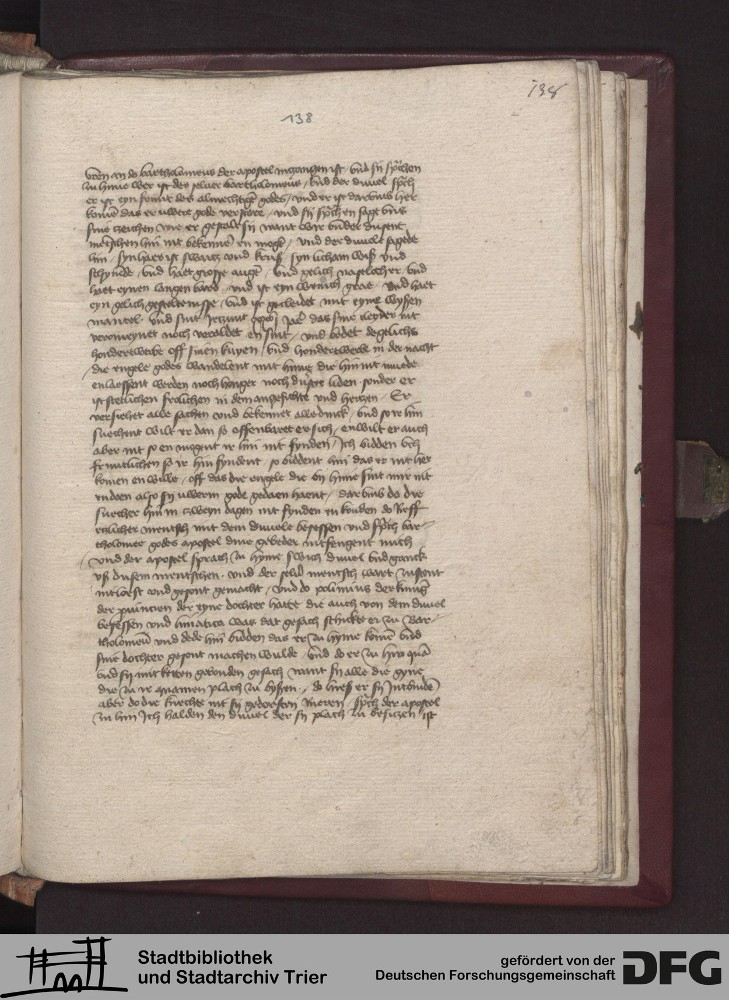 138
138
uren an do bartholomeus der apostel ingangen ist / und sij sprachen
zu hime wer ist der selver Bartholomeus / und der duvel sprach
er ist eyn frunt des almechtigen godes / und er ist darumb her
komen das er uwere gode verstore / und sij sprachen sage uns
sine zeichen wie er gestalt sij want wir under dusent
menschen hin nit bekennen en mogen / und der duvele sagede
hin / syn haer ist swartz und kruß syn licham wiß und
schynende / und haet grosse augen / und gelich naselocher und
haet eynen langen bard / und ist eyn wenich grae / und haet
eyn gelich gestaltenisse / und ist gecleidet mit eyme wyssen
mantel / und sint jetzunt xxvi jare das sine cleyder nit
verunreynet noch veraldet en sint / und bedet degelichs
hondertwerbe off sinen knyen / und hondertwerbe in der nacht
die engele godes wandelent mit hime die hin nit muede
enlaessent werden noch honger noch durste liden / sonder er
ist steclichen frolichen in dem angesichte und hertzen / Er
versiehet alle sachen und bekennet alle dinck / und so ir hin
suechent wilt er dan so offenbaret er sich / en wilt er auch
aber nit so en mogent ir hin nit fynden / Ich bidden uch
fruntlichen so ir hin fyndent / so biddent hin das er nit her
komen en wille / off das die engele die by hime sint mir nit
endoen also sij uwerm gode gedaen haent / dar umb do die
suecher hin in zweyn dagen nit fynden en kunden do rieff
ernlicher mensch mit dem duvele besessen und sprach bar-
tholomee godes apostel dine gebeder untfengent mich
und der apostel sprach zu hyme swich duvel und ganck
uß dusem mentschen / und der selve mentsch wart zustunt
intloest und gesont gemacht / und do polimius der kunig
der provincien der eyne dochter hatte die auch von dem duvel
besessen und lunatica was dat gesach schicket er zu Bar-
tholomeum und dede hin bidden das er zu hyme kome und
sine dochter gesont machen wulde / und do er zu hro quam
und sij mit ketten gebonden gesach want sij alle die gyne
die zu ir quamen plach zu byssen / do hiess er sij intbinden
aber do die knechte nit sij gedorsten rueren / sprach der apostel
zu hin Ich halden den duvel der sij plach zu besitzen ist
Stadtbibliothek
und Stadtarchiv Trier
gefördert von der
Deutschen Forschungsgemeinschaft
DFG